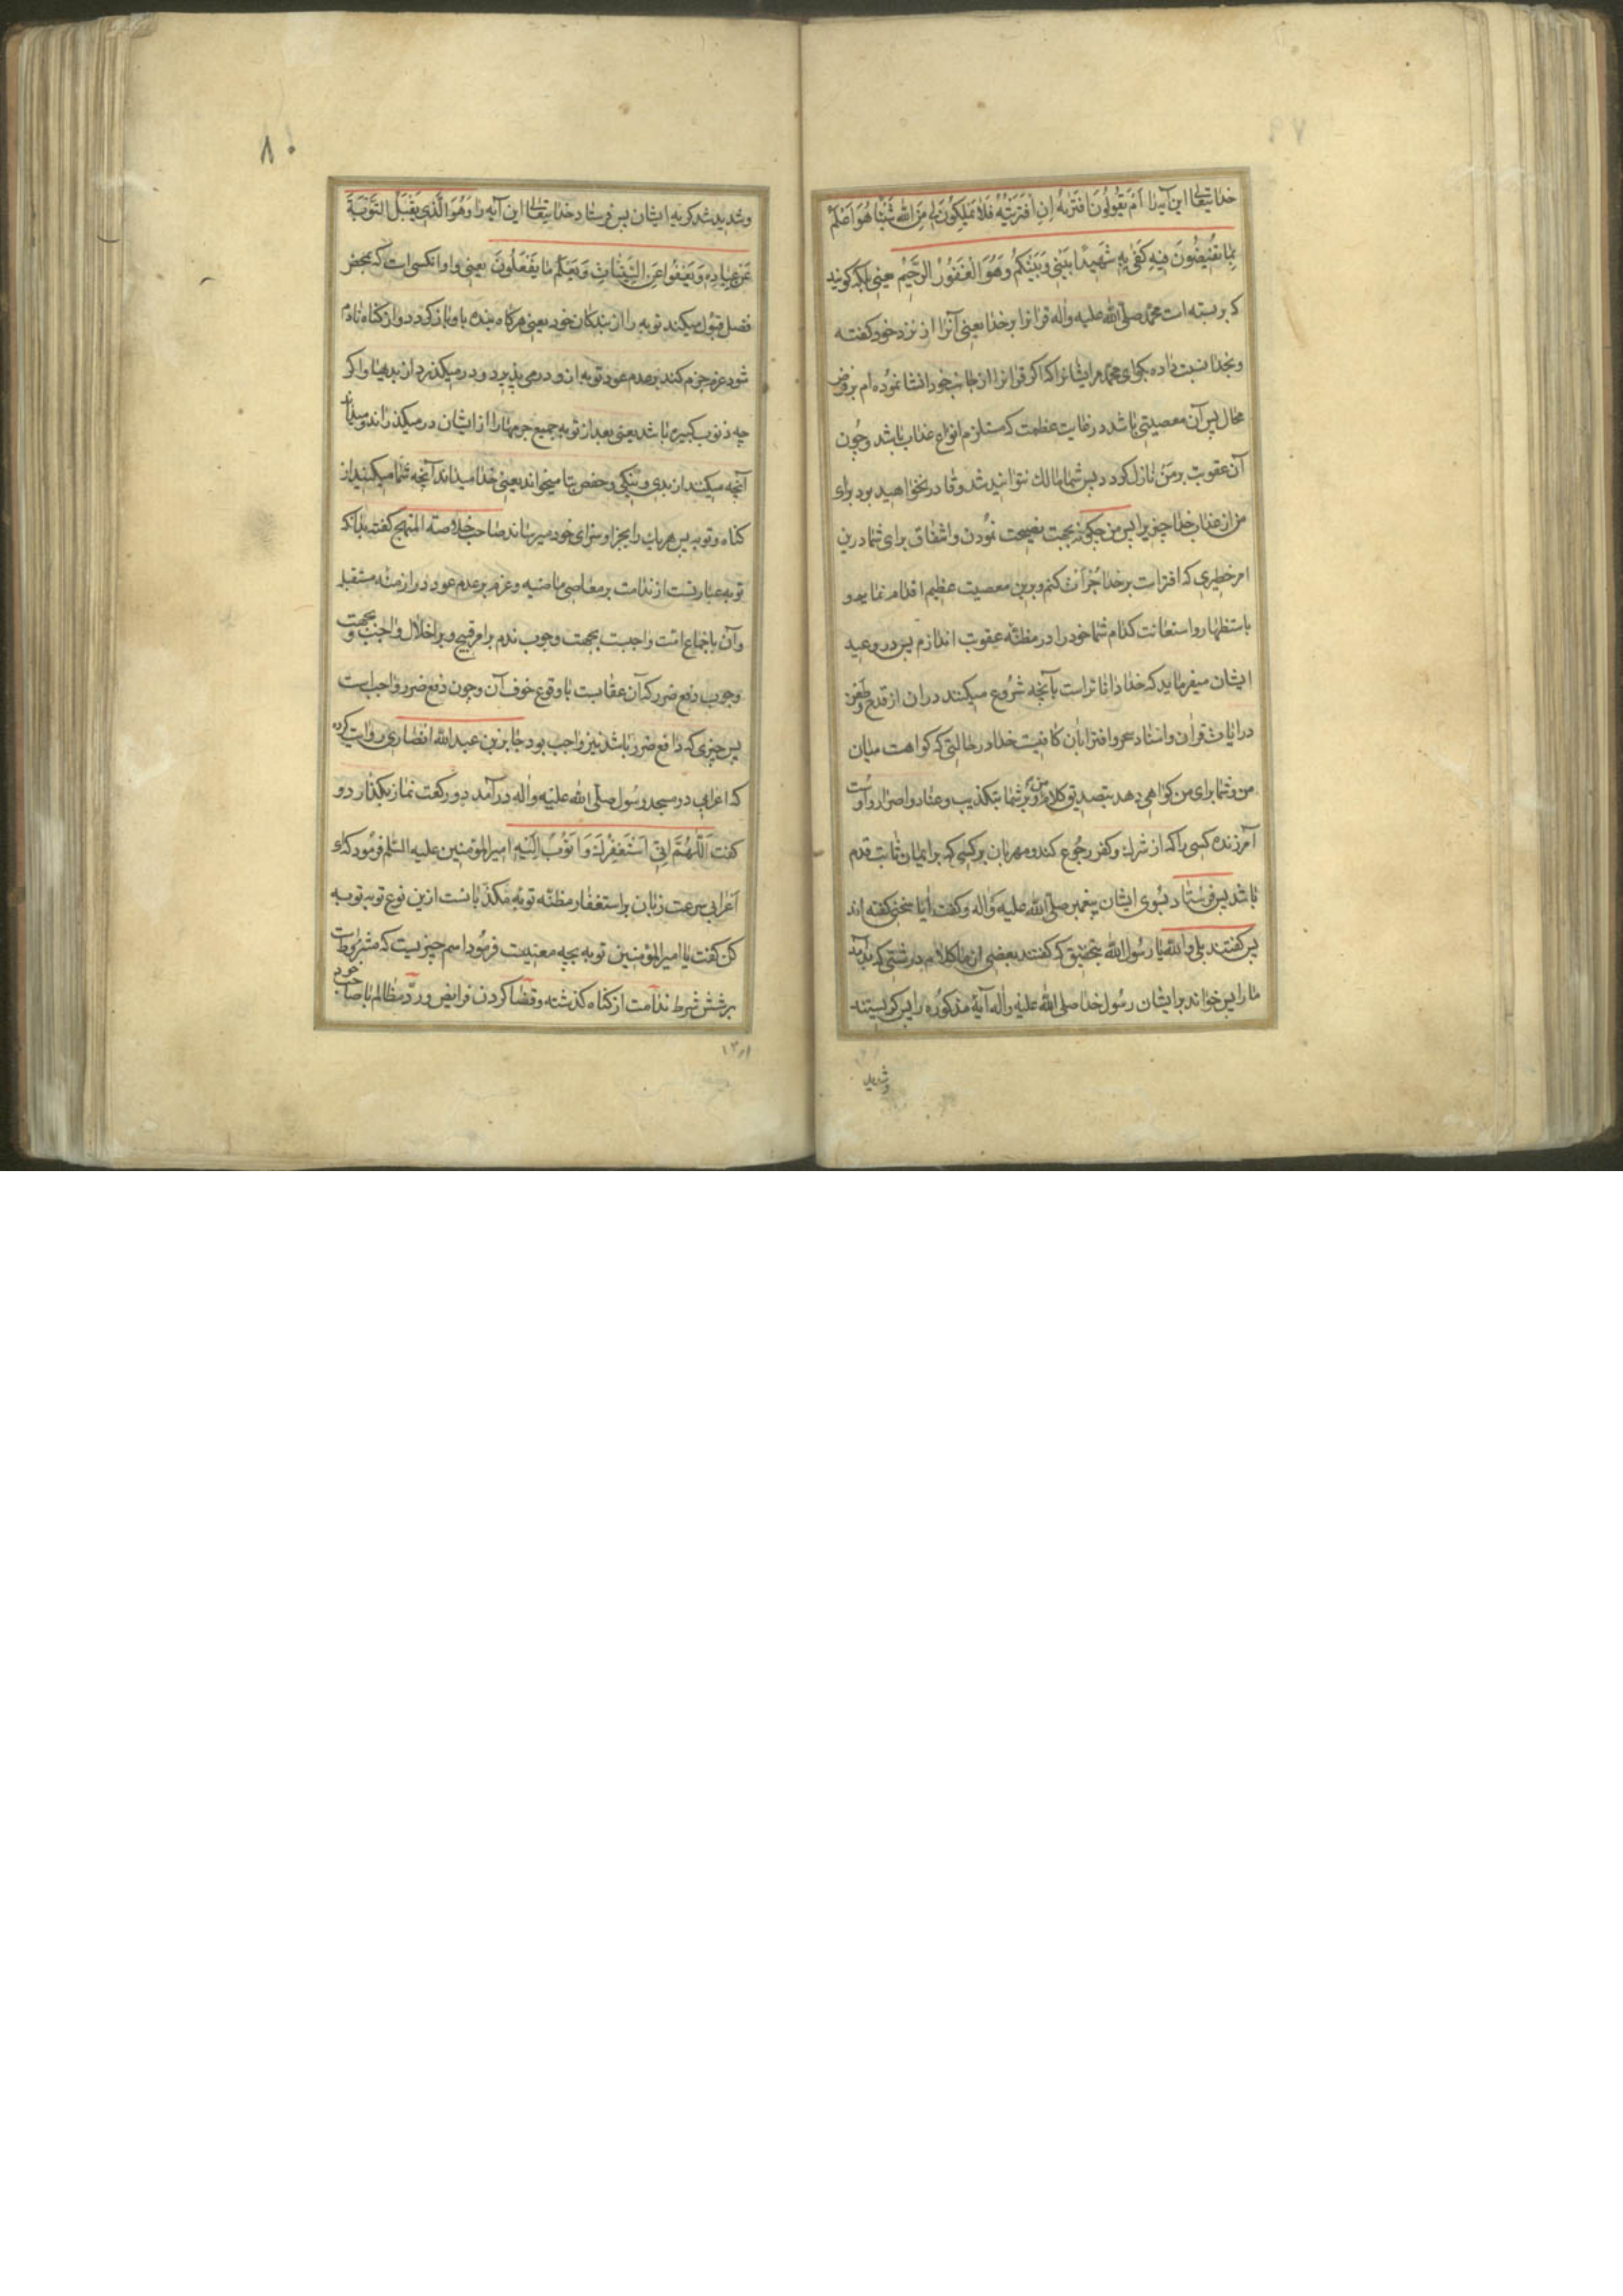 خدایتعالی این آیه را اَمْ یَقُولُونَ افْتَرٰیهُ اِنِ افْتَرَیْتُهُ فَلَا تَمْلِکُونَ لِی مِنَ اللّٰهِ شَیْئًا هُوَ اَعْلَمُ
بِمَا تُفِیضُونَ فِیهِ کَفٰی بِهِ شَهِیدًا بَیْنِی وَبَیْنَکُمْ وَهُوَ الْغَفُورُ الرَّحِیمُ یعنی بلکه کویند
که بربسته است محمد صلی الله علیه واله قرانرا برخدا یعنی آنرا از نزد خود کفته
وبخدا نسبت داده بکو ای محمد مر ایشانرا که اکر قرانرا از جانب خود انشا نموده ام بر فرض
محال پس آن معصیتی باشد در غایت عظمت که مستلزم انواع عذاب باشد وچون
آن عقوبت بر من نازل کردد پس شما مالك نتوانید شد وقادر نخواهید بود برای
من از عذاب خدا چیزیرا پس من چکونه بجهت نصیحت نمودن واشفاق برای شما درین
امر خطیری که افتراست برخدا جرأت کنم وبرین معصیت عظیم اقدام نمایم و
باستظهار واستعانت کدام شما خود را در مظنه عقوبت اندازم پس در وعید
ایشان میفرماید که خدا داناتر است بآنچه شروع میکنند دران از قدح وطعن
در ایات قران واسناد سحر وافترا بان کافیست خدا در حالتی که کواهست میان
من وشما برای من کواهی دهد بتصدیق کلام من وبر شما بتکذیب وعناد واصرار واوست
آمرزنده کسی را که از شرك وکفر رجوع کند ومهربان بر کسی که بر ایمان ثابت قدم
باشد پس فرستاد بسوی ایشان پیغمبر صلی الله علیه واله وکفت ایا سخنی کفته اند
پس کفتند بلی والله یا رسول الله بتحقیق که کفتند بعضی از ما کلام درشتی که بد آمد
ما را پس خواند بر ایشان رسول خدا صلی الله علیه واله آیهٔ مذکوره را پس کریستند
وشدید
۸۰
وشدید شد کریه ایشان پس فرستاد خدایتعالی این آیه را وَهُوَ الَّذِی یَقْبَلُ التَّوْبَةَ
عَنْ عِبَادِهِ وَیَعْفُوا عَنِ السَّیِّئَاتِ وَیَعْلَمُ مَا یَفْعَلُونَ یعنی واو انکسی است که بمحض
فضل قبول میکند توبه را از بندکان خود یعنی هرکاه بنده باو باز کردد واز کناه نادم
شود عزم جزم کند بر عدم عود توبه او در می پذیرد ودر میکذرد از بدیها واکر
چه ذنوب کبیره باشد یعنی بعد از توبه جمیع جرمها را از ایشان در میکذراند ومیداند
آنچه میکنند از بدی ونیکی وحفص بتا میخواند یعنی خدا میداند آنچه شما میکنید از
کناه وتوبه پس هریك را بجزا وسزای خود میرساند صاحب خلاصة المنهج کفته بدانکه
توبه عبارتست از ندامت بر معاصی ماضیه وعزم بر عدم عود در ازمنه مستقبله
وآن باجماع امت واجبست بجهت وجوب ندم بر امر قبیح وبر اخلال واجب وبجهت
وجوب دفع ضرر که آن عقابست با وقوع خوف آن وچون دفع ضرر واجب است
پس چیزی که دافع ضرر باشد نیز واجب بود جابر بن عبدالله انصاری روایت کرده
که اعرابی در مسجد رسول صلی الله علیه واله درآمد دو رکعت نماز بکذارد و
کفت اَللّٰهُمَّ اِنِّی اَسْتَغْفِرُكَ وَاَتُوبُ اِلَیْكَ امیرالمؤمنین علیه السلم فرمود که ای
اعرابی سرعت زبان باستغفار مظنه توبه مکذبانست ازین نوع توبه توبه
کن کفت یا امیرالمؤمنین توبه بچه معنیست فرمود اسم چیزیست که مشروطست
بر شش شرط ندامت از کناه کذشته وقضا کردن فرایض ورد مظالم با صاحب خود